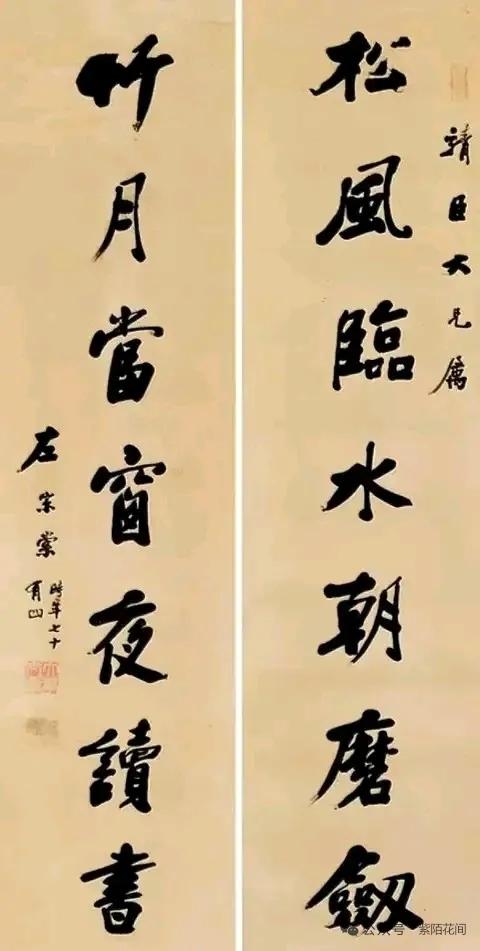 靖臣大兄属
松風臨水朝磨劒
竹月當窗夜讀書
左宗棠
時年七十
有四
公众号 · 紫陌花间